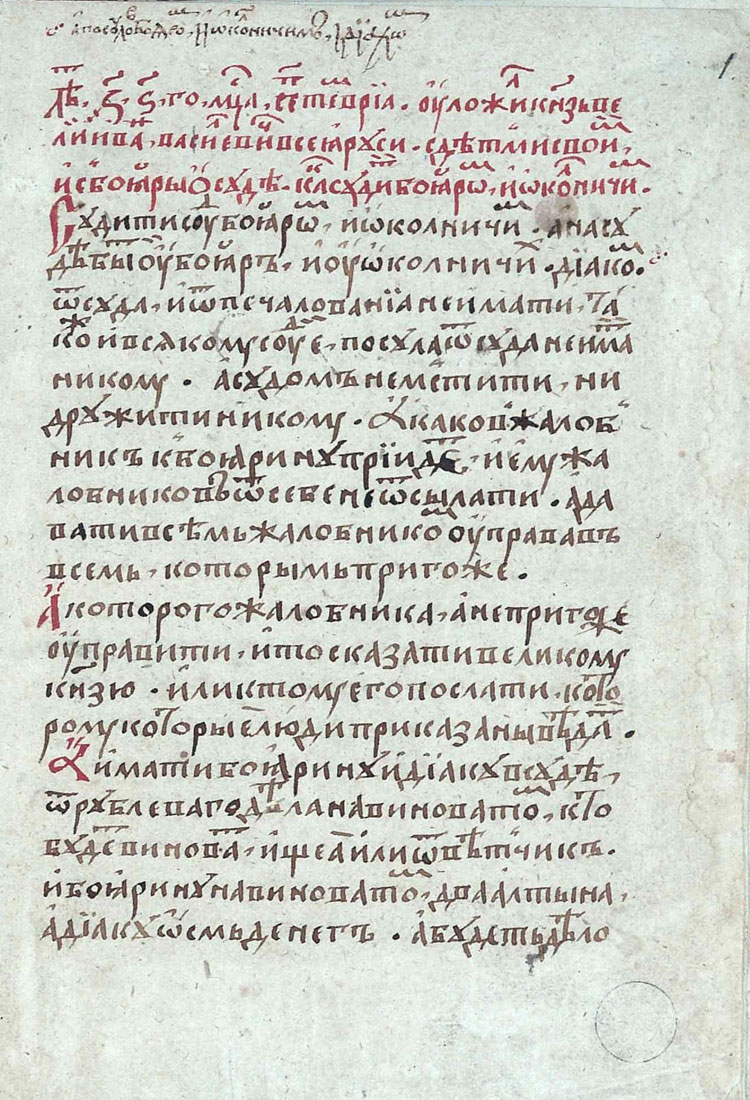 а посулов бояром, и околничимъ, и дїаком
Лѣт ҂ЗS го, мсца септеврїа. оуложил кнзь ве
ликїи иванъ василевич всеꙗ руси. с детми свои
ми и с боꙗры ѿ судѣ. как судити боꙗром, и ѡколничим.
Судити суд боꙗром, и ѡколничим. а на су
дѣ быти оу боꙗръ, и оу ѡколничих дїаком. а посулов бояром
ѿ суда, и ѿ печалованїа не имати, та
кож и всякому судїе, посула ѿ суда не имати
никому. а судомъ не мстити, ни
дружити никому. А каков жалоб
никъ к боꙗрину прїидет, и ему жа
лобниковъ ѿ себе не ѿсылати. а да
вати всѣмь жалобником оуправа въ
всемь, которымь пригоже.
А которого жалобника, а не пригоже
оуправити, и то сказати великому
кнзю. или к тому его послати, кото
рому которые люди приказаны вѣдати.
А имати боꙗрину и дїаку в судѣ
ѿ рублева го дѣла на виноватом, кто
будет виноват, ищеа или ѿвѣтчикъ.
и боꙗрину на виноватом, два алтына,
а дїаку ѡсмь денегъ. а будеть дѣло
1